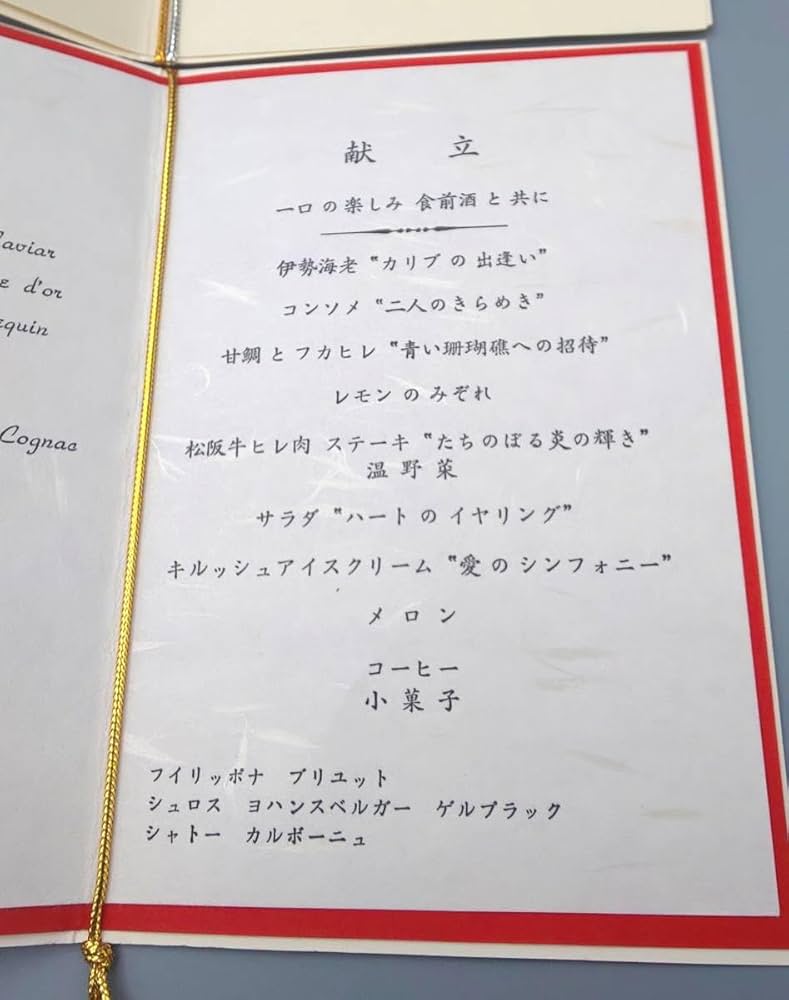 caviar
e d'or
equin
Cognac
献 立
一口の楽しみ 食前酒と共に
伊勢海老 〝カリブの出逢い〟
コンソメ 〝二人のきらめき〟
甘鯛とフカヒレ 〝青い珊瑚礁への招待〟
レモンのみぞれ
松阪牛ヒレ肉 ステーキ 〝たちのぼる炎の輝き〟
温野菜
サラダ 〝ハートのイヤリング〟
キルッシュアイスクリーム 〝愛のシンフォニー〟
メロン
コーヒー
小菓子
フイリッポナ ブリユット
シュロス ヨハンスベルガー ゲルプラック
シャトー カルボーニュ